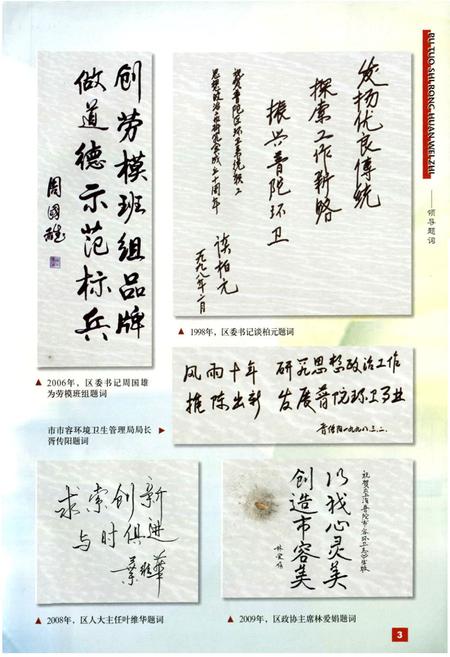 PU TUO SHI RONG HUAN WEI ZHI
领导题词
创劳模班组品牌
做道德示范标兵
周国雄
▲ 2006年，区委书记周国雄
为劳模班组题词
发扬优良傳統
探索工作新路
振兴普陀环卫
祝贺普陀区环卫系统职工
思想政治工作研究会成立十周年
谈柏元
一九九八年二月
▲ 1998年，区委书记谈柏元题词
风雨十年 研究思想政治工作
推陈出新 发展普陀环卫事业
胥传阳一九九八.三.二.
市市容环境卫生管理局局长 ▶
胥传阳题词
求索创新
与时俱进
叶维華
▲ 2008年，区人大主任叶维华题词
以我心灵美
创造市容美
林爱娟
▲ 2009年，区政协主席林爱娟题词
3